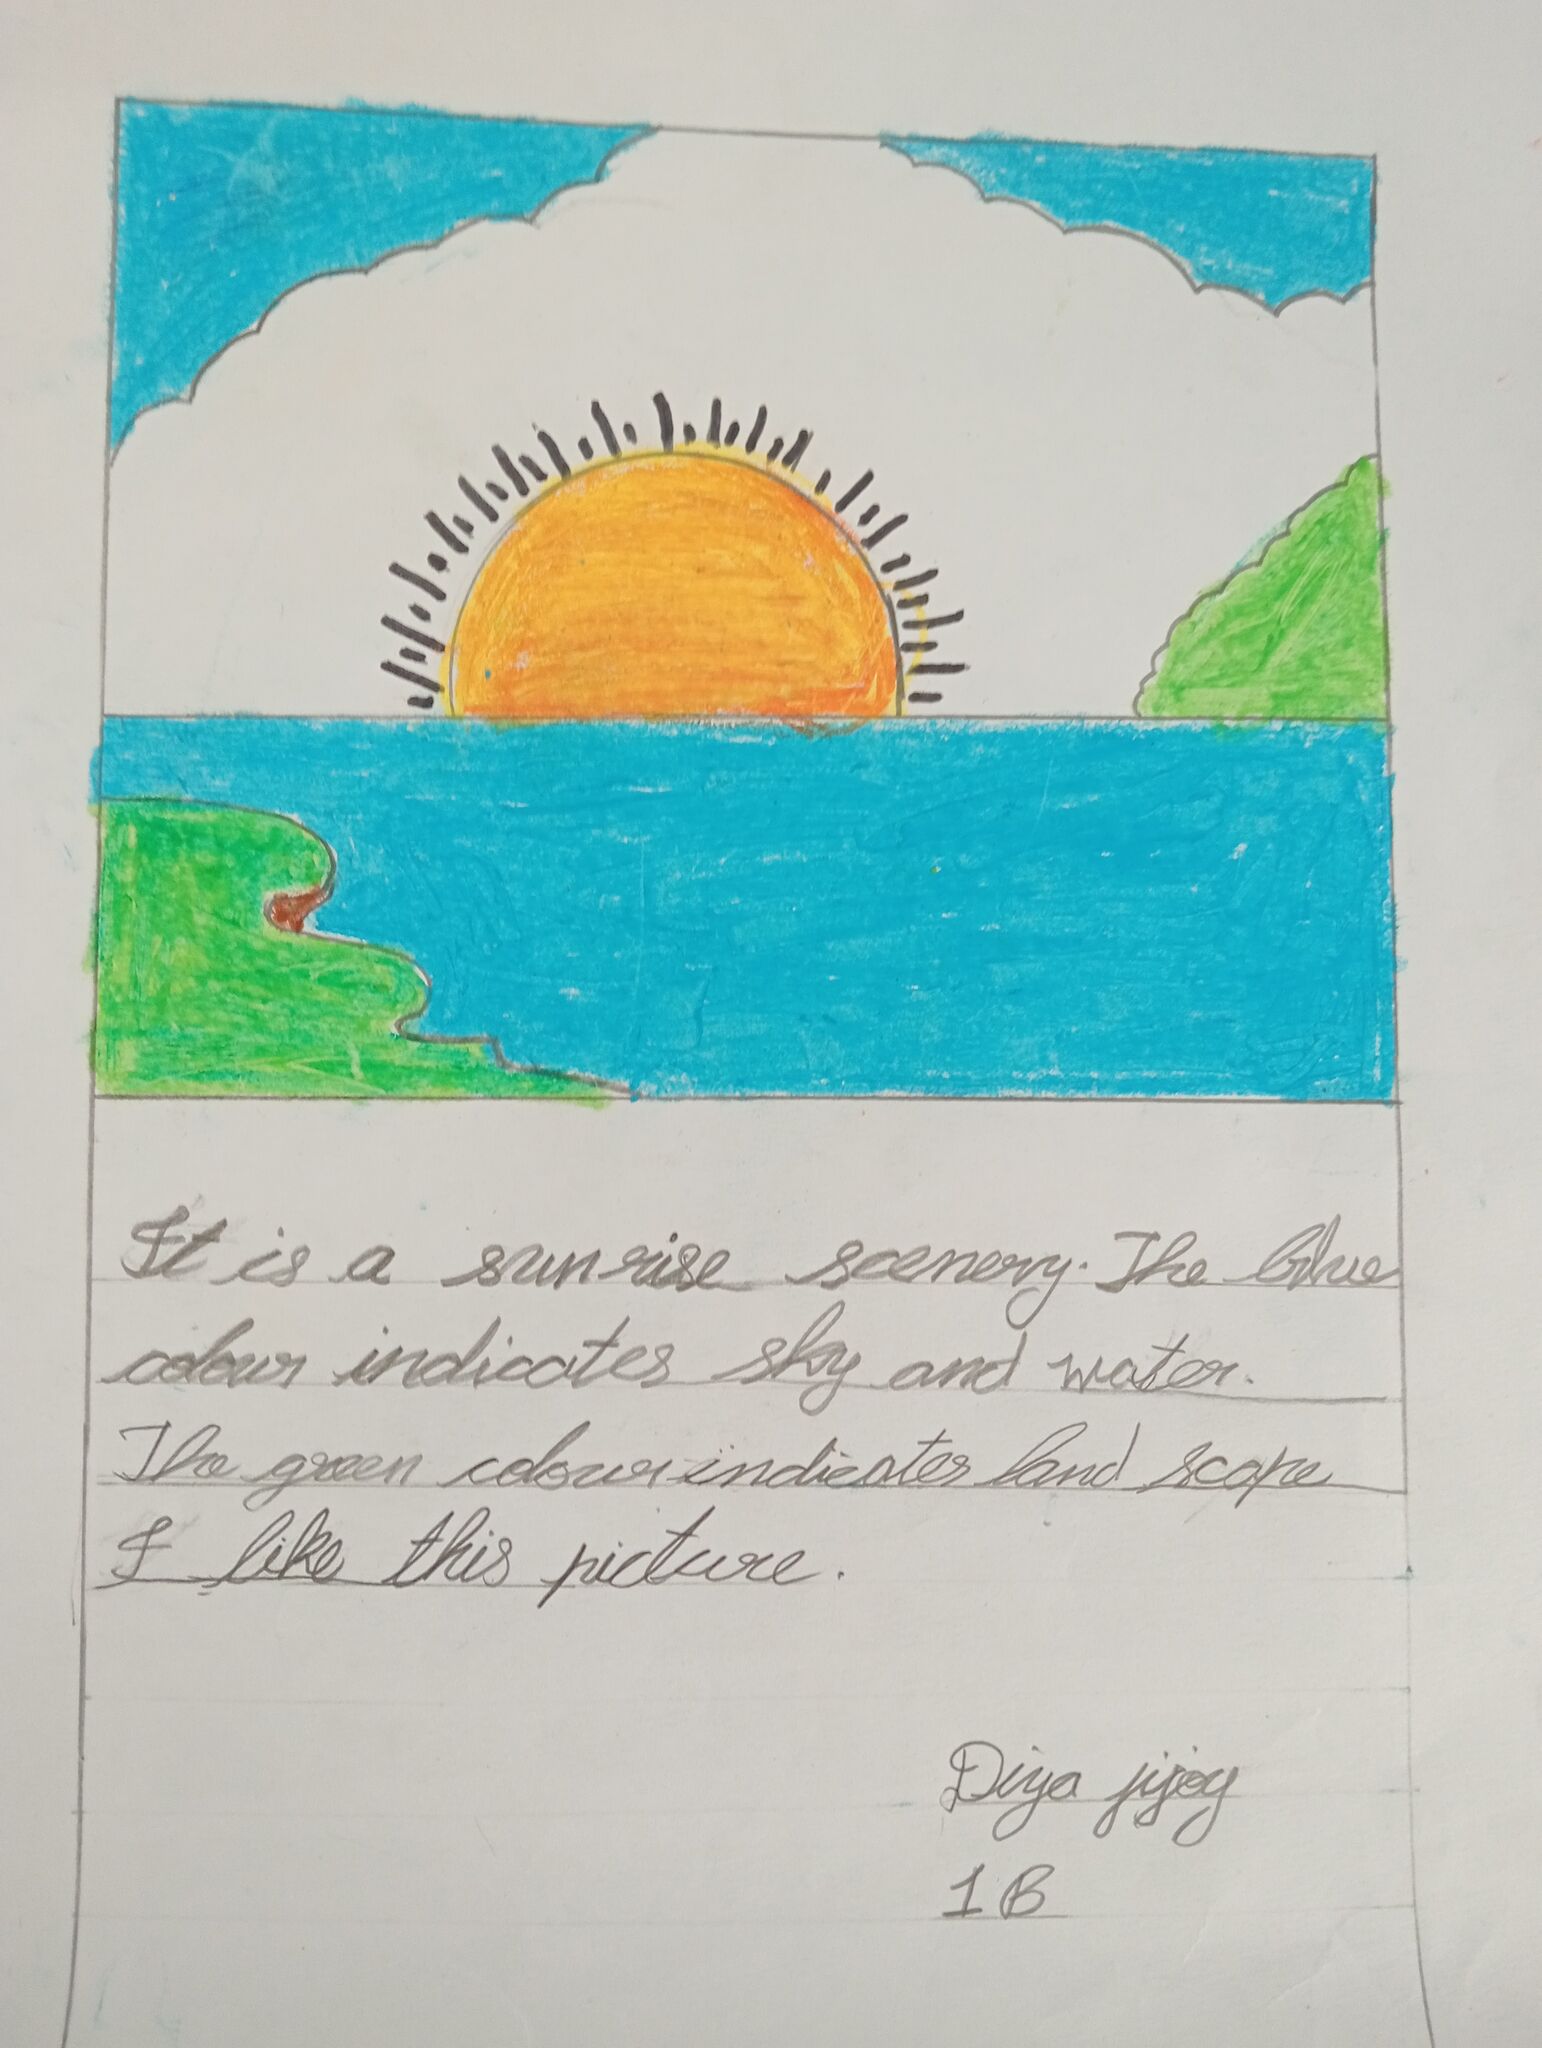 It is a sunrise scenery. The blue
colour indicates sky and water.
The green colour indicates land scape
I like this picture.
Diya jijoy
1 B